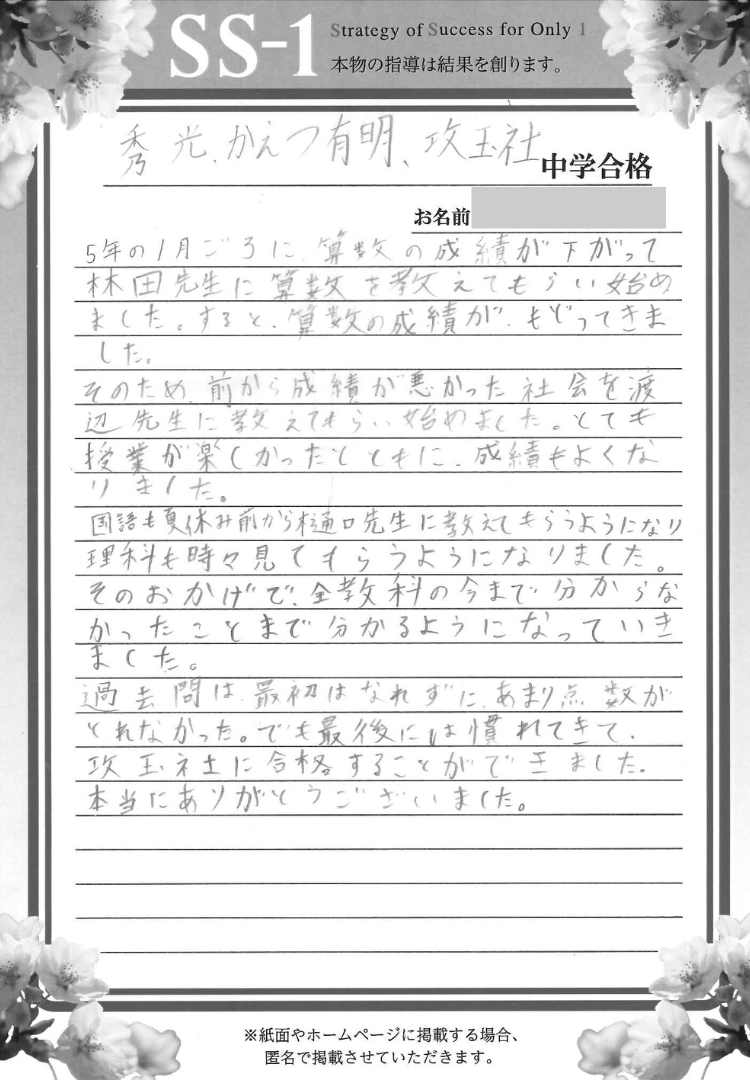 SS-1
Strategy of Success for Only 1
本物の指導は結果を創ります。
秀光、かえつ有明、攻玉社
中学合格
お名前
5年の1月ごろに、算数の成績が下がって
林田先生に算数を教えてもらい始め
ました。すると、算数の成績が、もどってきま
した。
そのため、前から成績が悪かった社会を渡
辺先生に教えてもらい始めました。とても
授業が楽しかったとともに、成績もよくな
りました。
国語も夏休み前から樋口先生に教えてもらうようになり
理科も時々見てもらうようになりました。
そのおかげで、全教科の今まで分からな
かったことまで分かるようになっていき
ました。
過去問は、最初はなれずに、あまり点数が
とれなかった。でも最後には慣れてきて、
攻玉社に合格することができました。
本当にありがとうございました。
※紙面やホームページに掲載する場合、
匿名で掲載させていただきます。